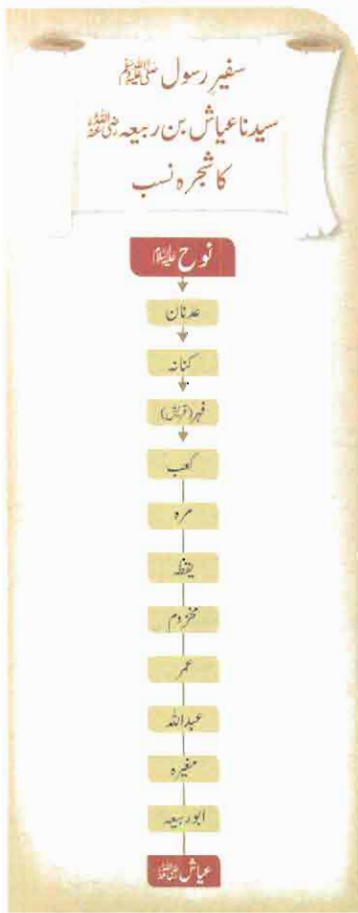 سفیرِ رسول ﷺ
سیدنا عیاش بن ربیعہ رضی اللہ عنہ
کا شجرہ نسب
نوح علیہ السلام
عدنان
کنانہ
فہر (قریش)
کعب
مرہ
یقظہ
مخزوم
عمر
عبداللہ
مغیرہ
ابوربیعہ
عیاش رضی اللہ عنہ